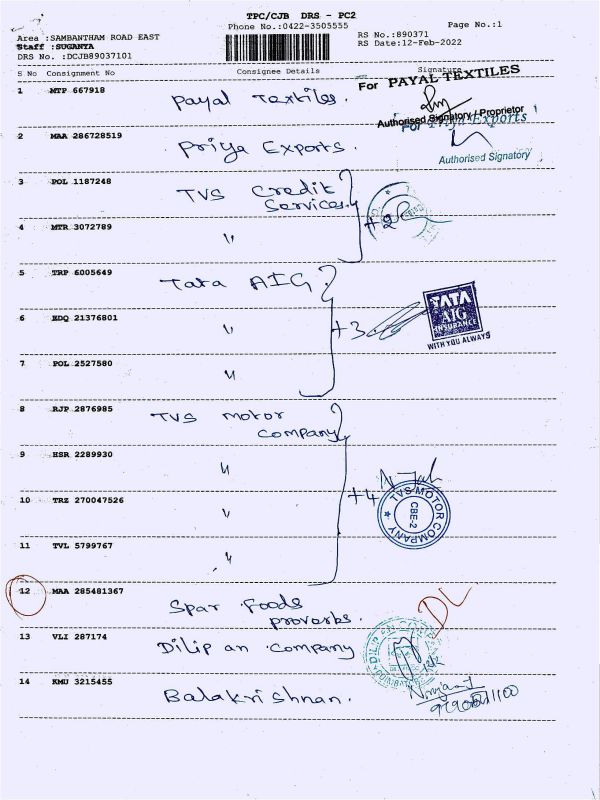 TPC/CJB DRS - PC2
Phone No.:0422-3505555
Page No.:1
Area :SAMBANTHAM ROAD EAST
Staff :SUGANYA
DRS No. :DCJB89037101
RS No.:890371
RS Date:12-Feb-2022
S No Consignment No Consignee Details Signature
1 MTP 667918 Payal Textiles.
For PAYAL TEXTILES
Authorised Signatory / Proprietor
2 MAA 286728519 Priya Exports.
For Priya Exports
Authorised Signatory
3 POL 1187248 TVS Credit
Services.
+2
4 MTR 3072789 "
5 TRP 6005649 Tata AIG
6 EDQ 21376801 "
+3
TATA
AIG
INSURANCE
WITH YOU ALWAYS
7 POL 2527580 "
8 RJP 2876985 TVS Motor
Company
9 HSR 2289930 "
+4
10 TRZ 270047526 "
TVS MOTOR COMPANY
CBE-2
11 TVL 5799767 "
12 MAA 285481367 Spar Foods
proverbs.
DL
13 VLI 287174 Dilip an Company
14 KMU 3215455 Balakrishnan.